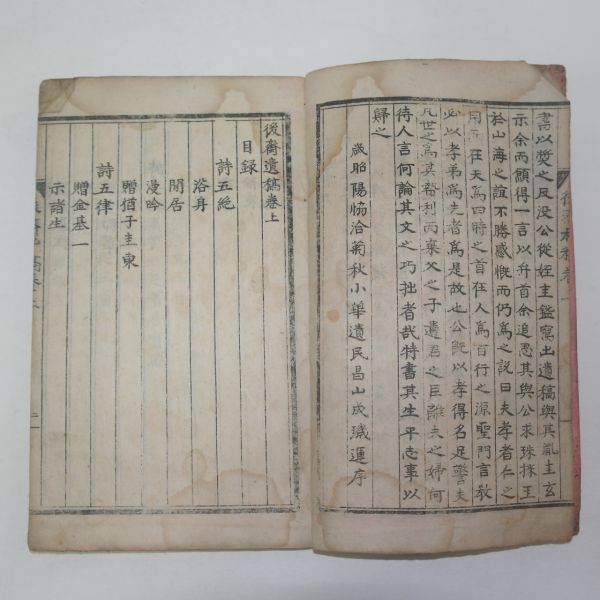 書以燹之反没公從姪圭鑑寫出遺稿與其胤圭玄
示余而願得一言以弁首余追思其與公求珠採玉
於山海之誼不勝感慨而仍爲之說曰夫孝者仁之
用而在天爲四時之首在人爲百行之源聖門言教
必以孝弟爲先者爲是故也公旣以孝得名足警夫
凡世之爲其啚利而棄父之子遺君之臣離夫之婦何
待人言何論其文之巧拙者哉特書其生平志事以
歸之
歲昭陽恊洽菊秋小華遺民昌山成璣運序
後齋遺稿卷上
目録
詩五絶
浴身
閒居
漫吟
詩五律
贈猶子圭東
贈金基一
示諸生